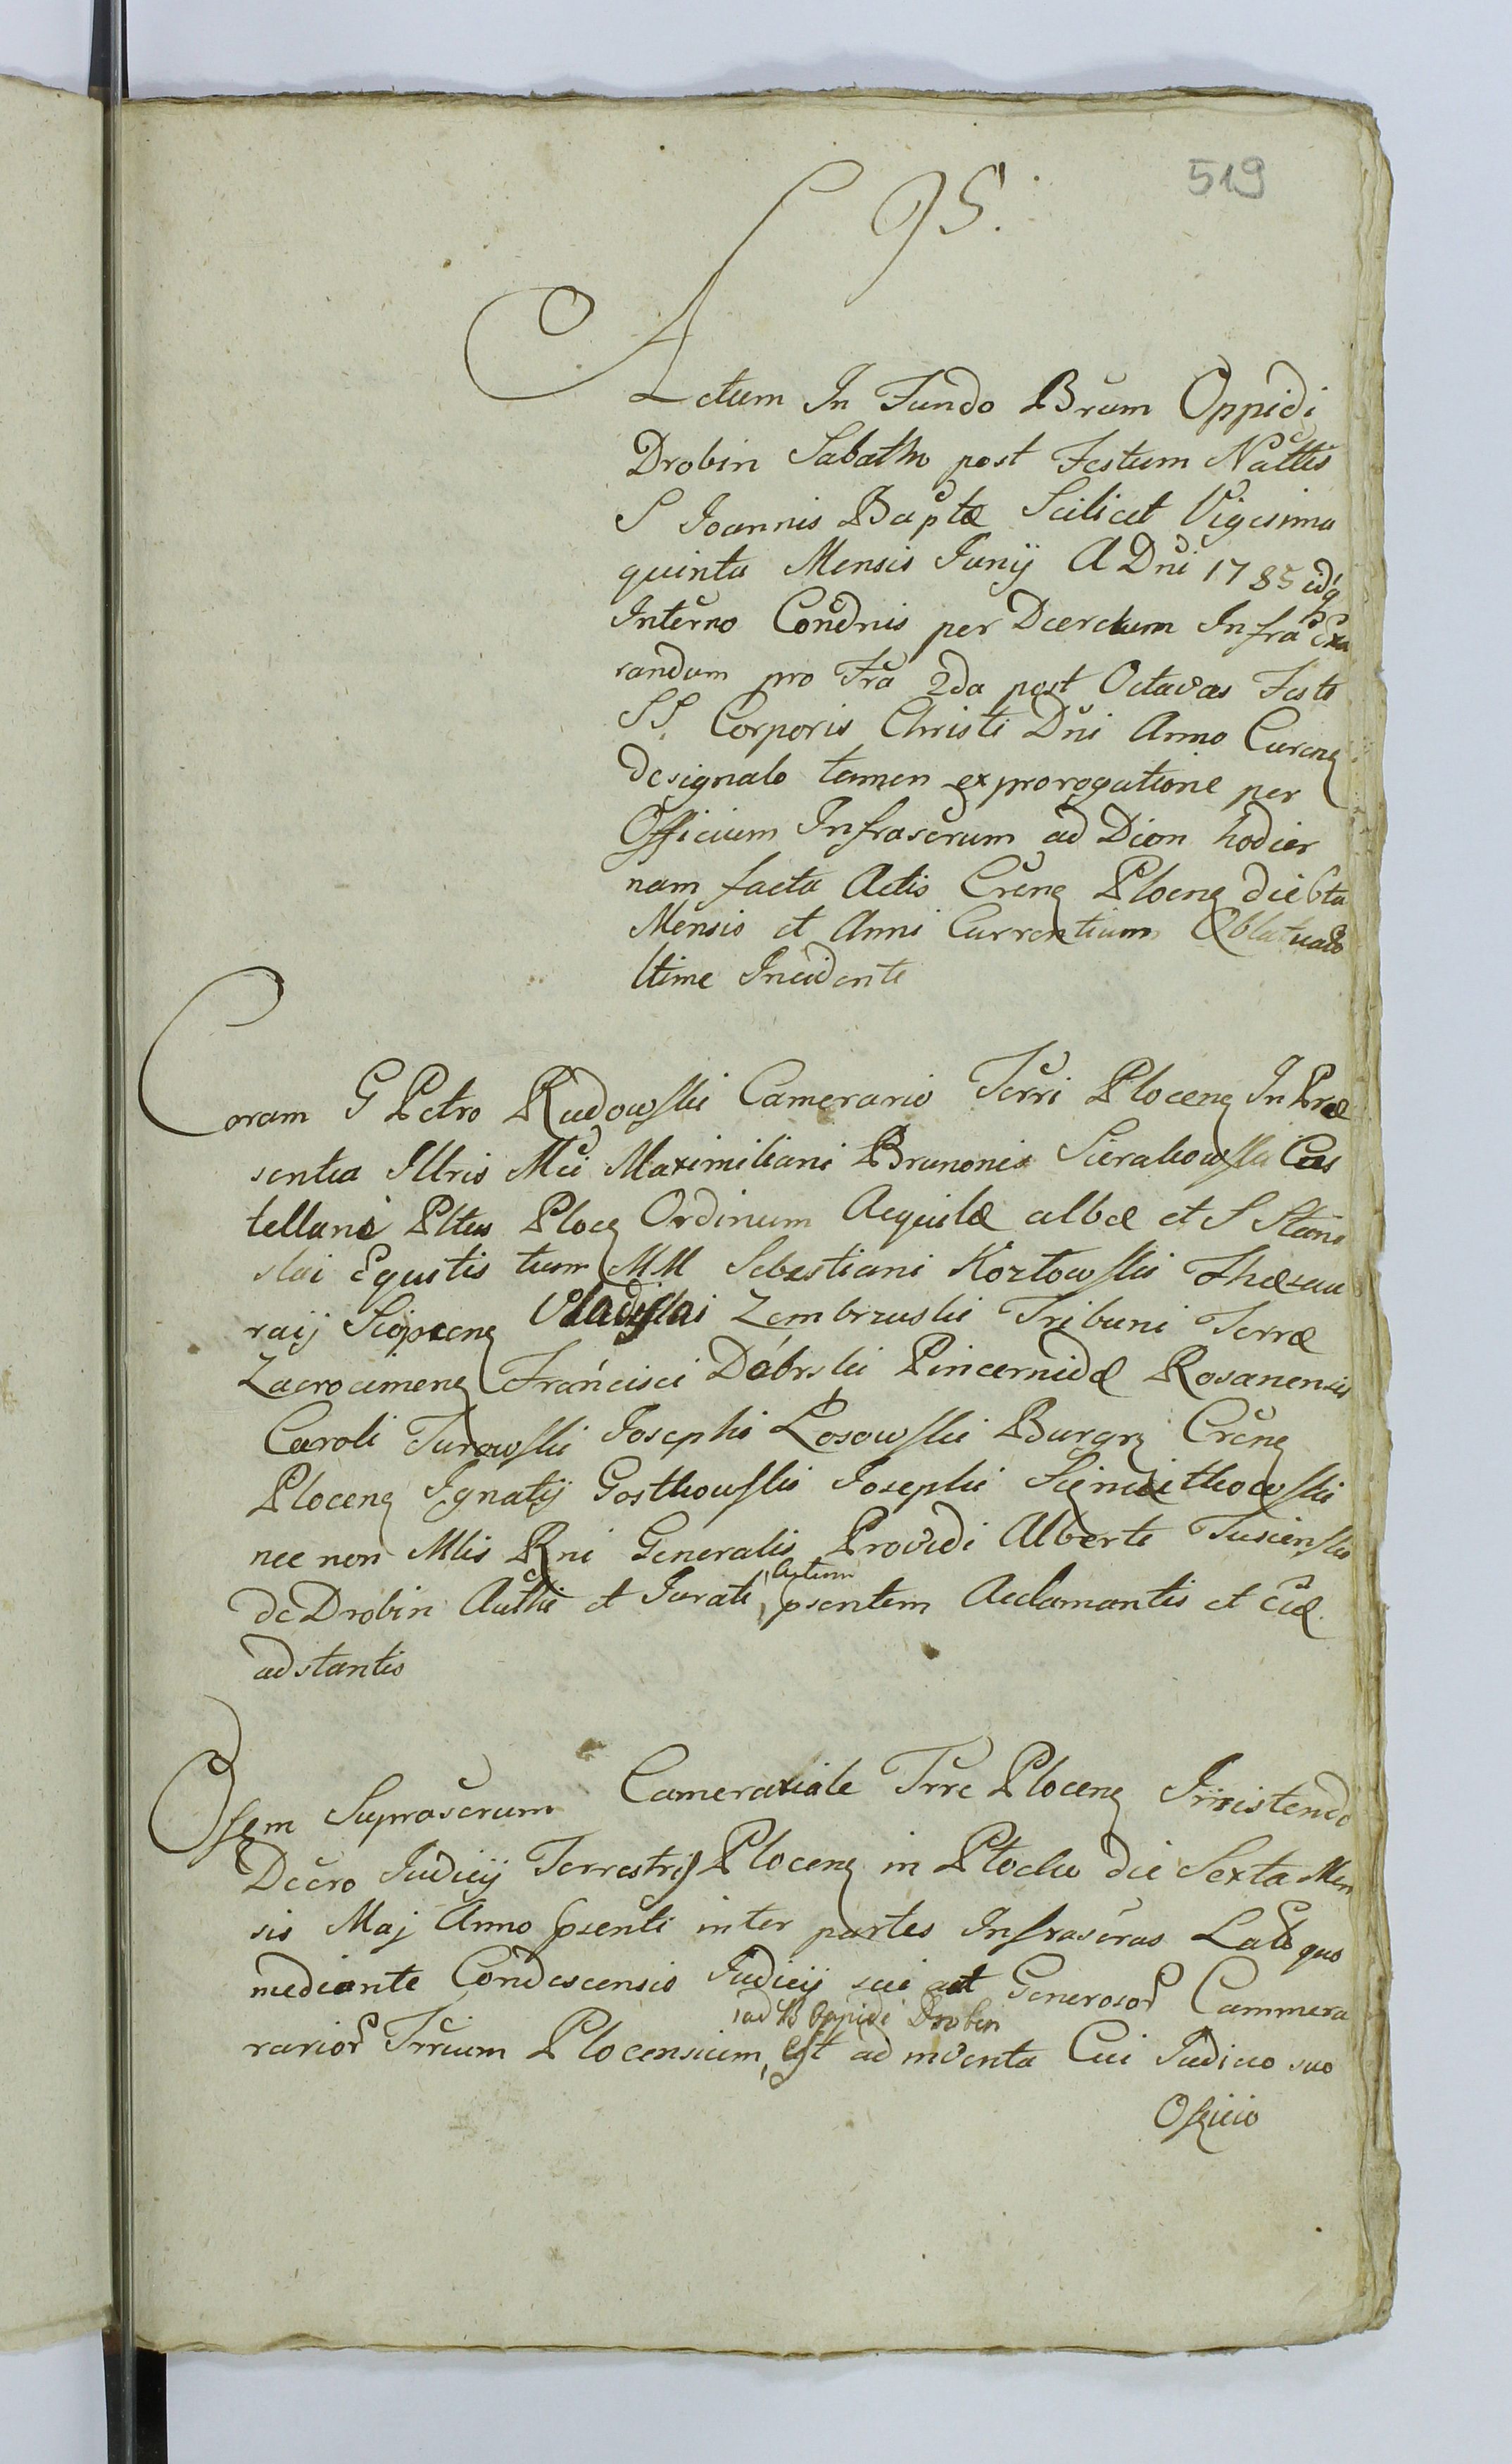 519
95.
Actum In Fundo Brum Oppidi
Drobin Sabatho post Festum Nattis
S Ioannis Baptæ Scilicet Vigesima
quinta Mensis Junij A Dni 1785 idq
Interno Condnis per Dcerctum Infra Exa
randum pro Fra 2da post Octavas Festi
SS. Corporis Christi Dni Anno Curen
designato tamen ex prorogatione per
Officium Infrascrum ad Diem hodier
nam facta Actis Cren Plocen die 6ta
Mensis et Anni Currentium
ltime Incidente
Coram G Petro Rudowski Camerario Terri Plocen In Præ
sentia Illris Mci Maximiliani Brunonis Sierakowski Cas
tellani Pltus Ploc Ordinum Aequilæ albæ et S Stani
slai Equitis tum MM Sebestiani Kozłowski Thæsau
rarij Vladislai Zembrzuski Tribuni Terræ
Zacrocimen Francisci Dąbrski Pincernidæ Rosanensis
Caroli Turowski Josephi Łosowski Burgr Cren
Plocen Ignatij Gostkowski Josephi
nec non Mlis Rni Generalis Providi Alberti
de Drobin Authi et Jurati, Actum psentem Aclamantis et
adstantis
Offm Suprascrum Camerariale Trre Plocen Inxistendo
Dccro Judicij Terrestris Plocen in Płocku die Sexta Men
sis Maj Anno psenti inter partes Infrascras Lato quo
mediante Condescensio Judicij sui aut Generosor Cammera
rarior Trrium Plocensium, ad B Oppidi Drobin est ad inventa Cui Judicio suo
Officio